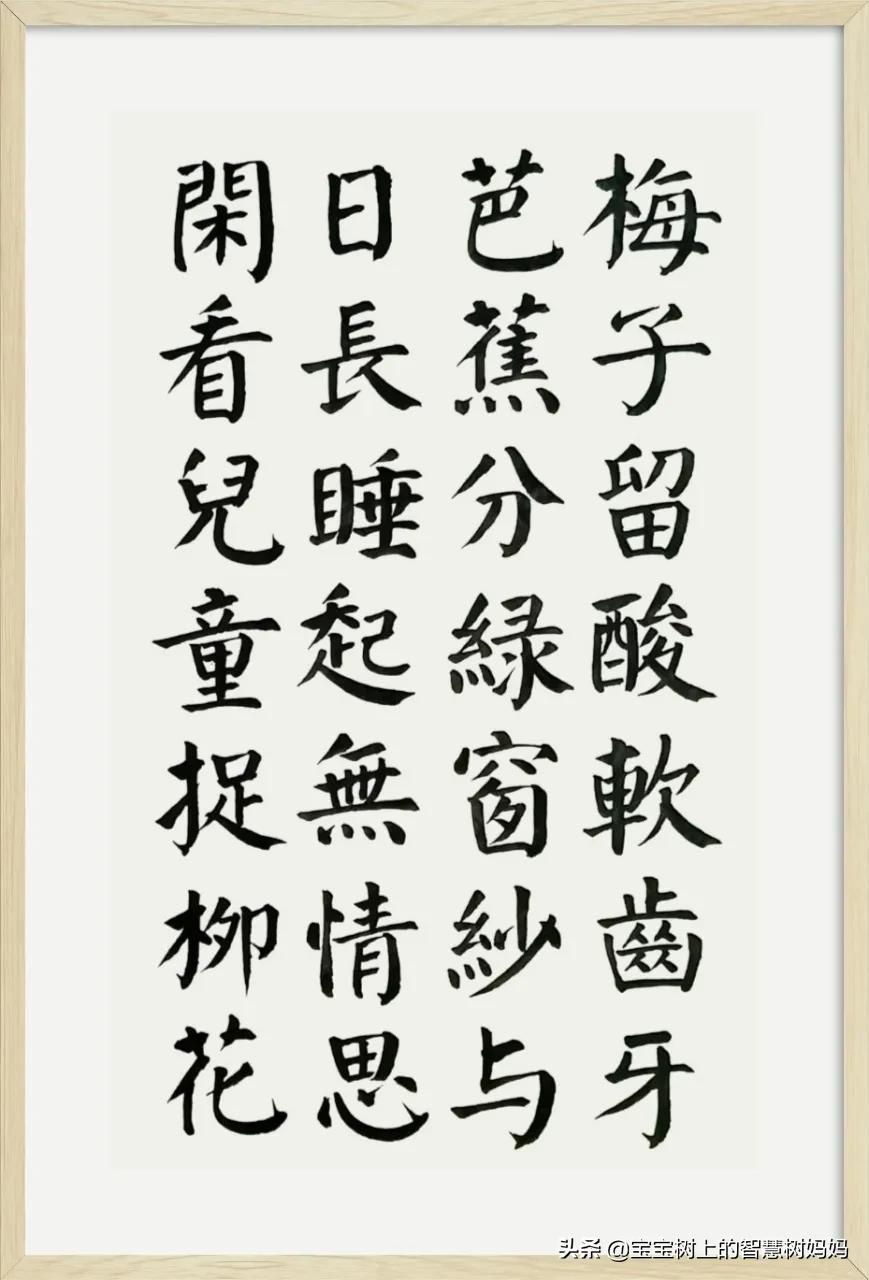 梅子留酸軟齒牙
芭蕉分緑窗紗与
日長睡起無情思
閑看兒童捉柳花
头条 @宝宝树上的智慧树妈妈